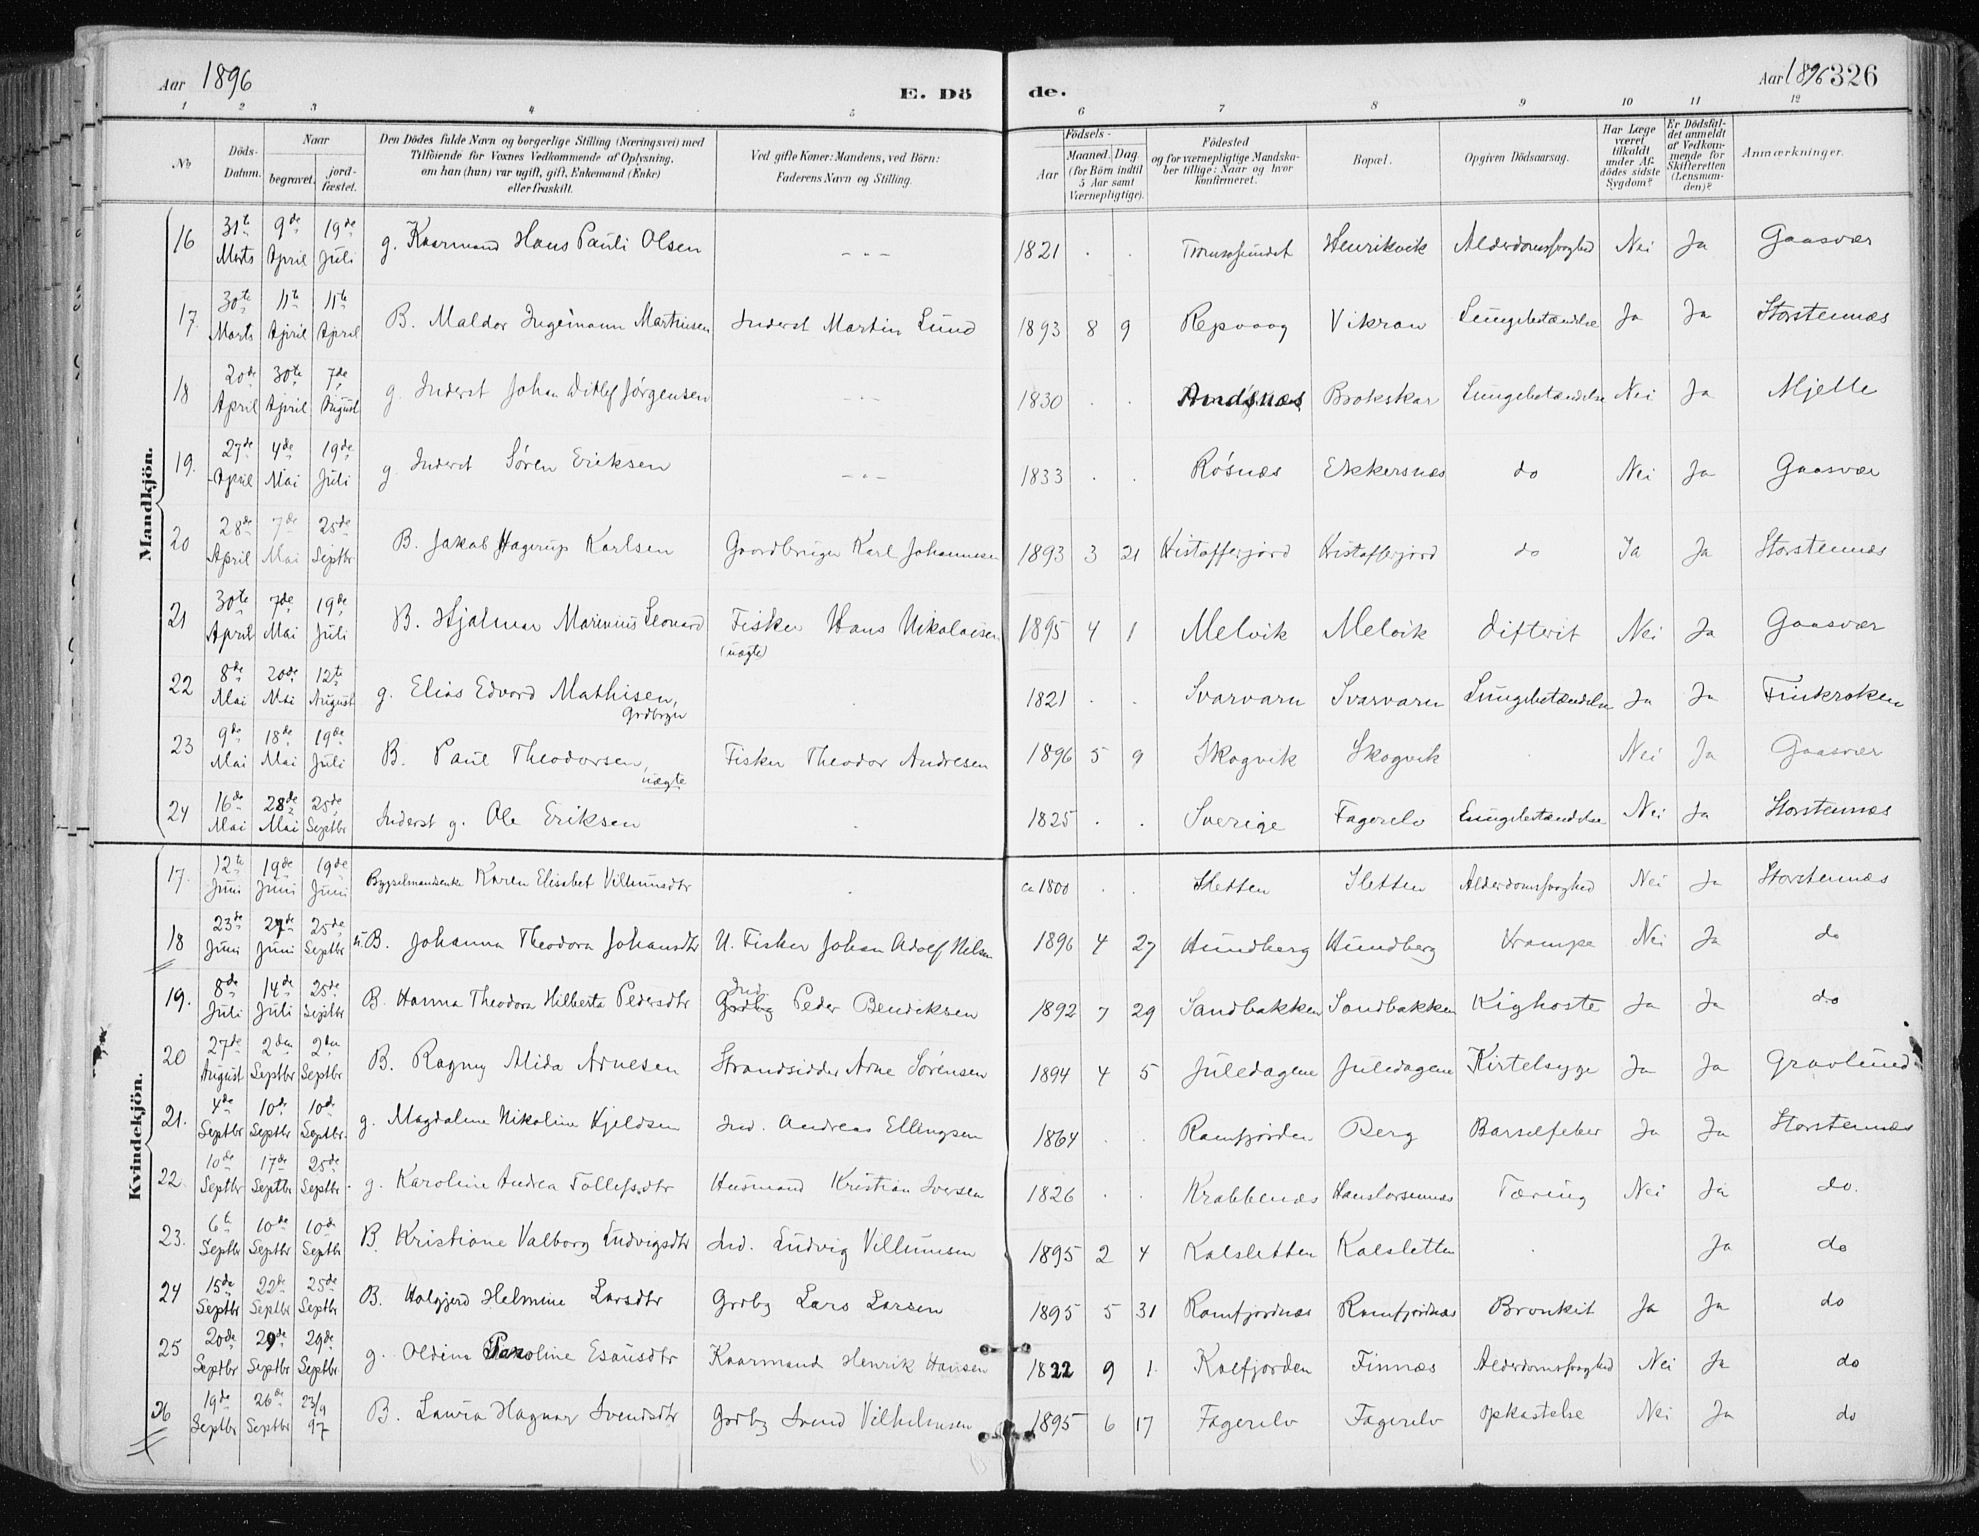 Aar 1896 E. Dö de. Aar 1896 326
1 2 3 4 5 6 7 8 9 10 11 12
No Döds-Datum. Naar begravet. jord-fæstet. Den Dödes fulde Navn og borgerlige Stilling (Næringsvei) med Tilföiende for Voxnes Vedkommende af Oplysning, om han (hun) var ugift, gift, Enkemand (Enke) eller fraskilt. Ved gifte Koner: Mandens, ved Börn: Faderens Navn og Stilling. Födsels- Aar Maaned. Dag. (for Börn indtil 5 Aar samt Værnepligtige). Födested og for værnepligtige Mandskaber tillige: Naar og hvor konfirmeret. Bopæl. Opgiven Dödsaarsag. Har Læge været tilkaldt under Afdödes sidste Sygdom? Er Dödsfaldet anmeldt af Vedkommende for Skifteretten (Lensmanden)? Anmærkninger.
Mandkjön.
16 31te Marts 9de April 19de Juli g. Kaarmand Hans Pauli Olsen - - - 1821 . . Tromsøsundet Henrikvik Alderdomssvaghed Nei Ja Gaasvær
17. 30te Marts 11te April 11te April B. Maldor Ingemann Martinsen Inderst Martin Lund 1893 8 9 Repvaag Vikran Lungebetændelse Ja Ja Storstennæs
18 20de April 30te April 7de August g. Inderst Johan Ditlef Jørgensen - - - 1830 . . Andsnæs Brokskar Lungebetændelse Nei Ja Mjelle
19. 27de April 4de Mai 19de Juli g. Inderst Søren Eriksen - - - 1833 . . Røsnæs Ekkersnæs do Nei Ja Gaasvær
20 28de April 7de Mai 25de Septbr B. Jakob Hagerup Karlsen Gaardbruger Karl Johannesen 1893 3 21 Kistafferjord Kistafferjord do Ja Ja Storstennæs
21 30te April 7de Mai 19de Juli B. Hjalmar Marinius Leonard Fisker Hans Nikolaisen (uægte) 1895 4 1 Melvik Melvik Difterit Nei Ja Gaasvær
22 8de Mai 20de Mai 12te August g. Elias Edvard Mathisen, Grdbrger . 1821 . . Svarvarn Svarvarn Lungebetændelse Ja Ja Finkroken
23 9de Mai 18de Mai 19de Juli B. Paul Theodorsen, uægte Fisker Theodor Andresen 1896 5 9 Skogvik Skogvik . Nei Ja Gaasvær
24 16de Mai 28de Mai 25de Septbr Inderst g. Ole Eriksen . 1825 . . Sverige Fagerelv Lungebetændelse Nei Ja Storstennæs
Kvindekjön.
17. 12te Juni 19de Juni 19de Juni Bygselmandsenke Karen Elisabet Vilhumsdtr . ca 1800 . . Sletten Sletten Alderdomssvaghed Nei Ja Storstennæs
18 23de Juni 27de Juni 25de Septbr u. B. Johanna Theodora Johansdtr U. Fisker Johan Adolf Nilsen 1896 4 27 Hundberg Hundberg Krampe Nei Ja do
19. 8de Juli 14de Juli 25de Septbr B. Hanna Theodora Hilberta Pedersdtr Ind. Grdbg Peder Bendiksen 1892 7 29 Sandbakken Sandbakken Kighoste Ja Ja do
20 27de August 2den Septbr 2den Septbr B. Ragny Alida Arnesen Strandsidder Arne Sørensen 1894 4 5 Juledagene Juledagene Kirtelsyge Ja Ja Gravlund
21. 4de Septbr 10de Septbr 10de Septbr. g. Magdalene Nikoline Kjeldsen Ind. Andreas Ellingsen 1864 . . Ramfjorden Berg Barselfeber Ja Ja Storstennæs
22. 10de Septbr 17de Septbr 25de Septbr. g. Karoline Andrea Tollefsdtr Husmand Kristian Iversen 1826 . . Krabbenæs Hanslarsennæs Tæring Nei Ja do.
23. 6te Septbr 10de Septbr 10de Septbr B. Kristiane Valborg Ludvigsdtr Ind. Ludvig Villumsen 1895 2 4 Kalsletten Kalsletten . Ja do
24 15de Septbr 22de Septbr 25de Septbr B. Halgjerd Helmine Larsdtr Grdbg Lars Larsen 1895 5 31 Ramfjordnæs Ramfjordnæs Bronkit Ja Ja do
25 20de Septbr 29de Septbr 29de Septbr g. Oldina Paroline Esausdtr Kaarmand Henrik Hansen 1822 9 1. Kalfjorden Finnæs Alderdomssvaghed Nei Ja do
26 19de Septbr 26de Septbr 23/9 97 B. Laura Hagnar Svendsdtr Grdbg Svend Vilhelmsen 1895 6 17 Fagerelv Fagerelv Opkastelse Nei Ja do